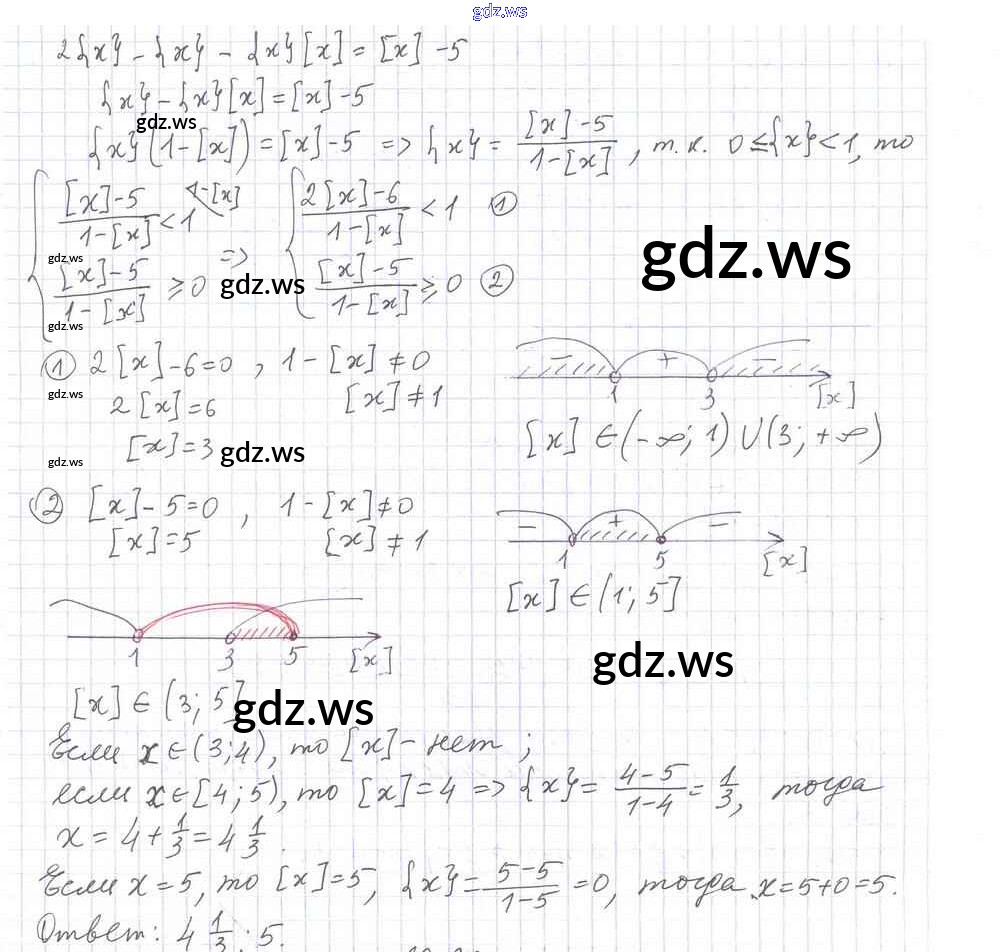 gdz.ws
2{x} - {x} - {x}[x] = [x] - 5
{x} - {x}[x] = [x] - 5
gdz.ws
{x}(1-[x]) = [x] - 5 => {x} = ([x]-5)/(1-[x]), т.к. 0 ≤ {x} < 1, то
{ ([x]-5)/(1-[x]) < 1 1-[x] => { (2[x]-6)/(1-[x]) < 1 ①
gdz.ws
gdz.ws
([x]-5)/(1-[x]) ≥ 0 ([x]-5)/(1-[x]) ≥ 0 ②
gdz.ws
gdz.ws
① 2[x]-6=0, 1-[x] ≠ 0
gdz.ws
2[x]=6 [x] ≠ 1
[x]=3
gdz.ws
gdz.ws
- + -
1 3 [x]
[x] ∈ (-∞; 1) ∪ (3; +∞)
② [x]-5=0, 1-[x] ≠ 0
[x]=5 [x] ≠ 1
- + -
1 5 [x]
[x] ∈ (1; 5]
1 3 5 [x]
gdz.ws
[x] ∈ (3; 5]
gdz.ws
Если x ∈ (3;4), то [x] - нет;
если x ∈ [4; 5), то [x] = 4 => {x} = (4-5)/(1-4) = 1/3, тогда
x = 4 + 1/3 = 4 1/3.
Если x = 5, то [x] = 5, {x} = (5-5)/(1-5) = 0, тогда x = 5+0 = 5.
Ответ: 4 1/3; 5.